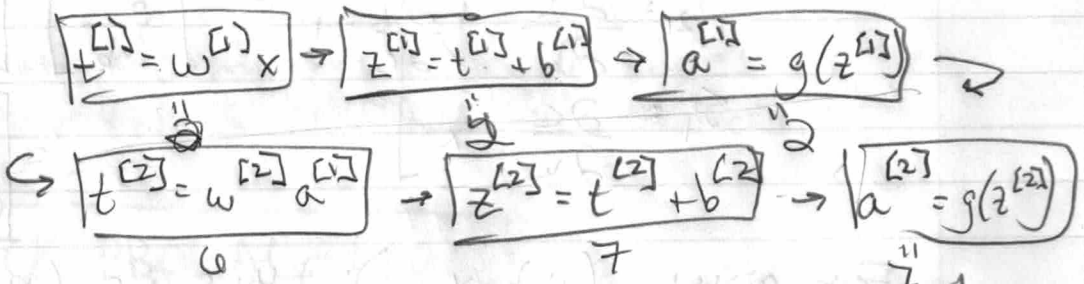 t^[1] = w^[1] x → z^[1] = t^[1] + b^[1] → a^[1] = g(z^[1])
" " 2 " 2
t^[2] = w^[2] a^[1] → z^[2] = t^[2] + b^[2] → a^[2] = g(z^[2])
6 7 " 7